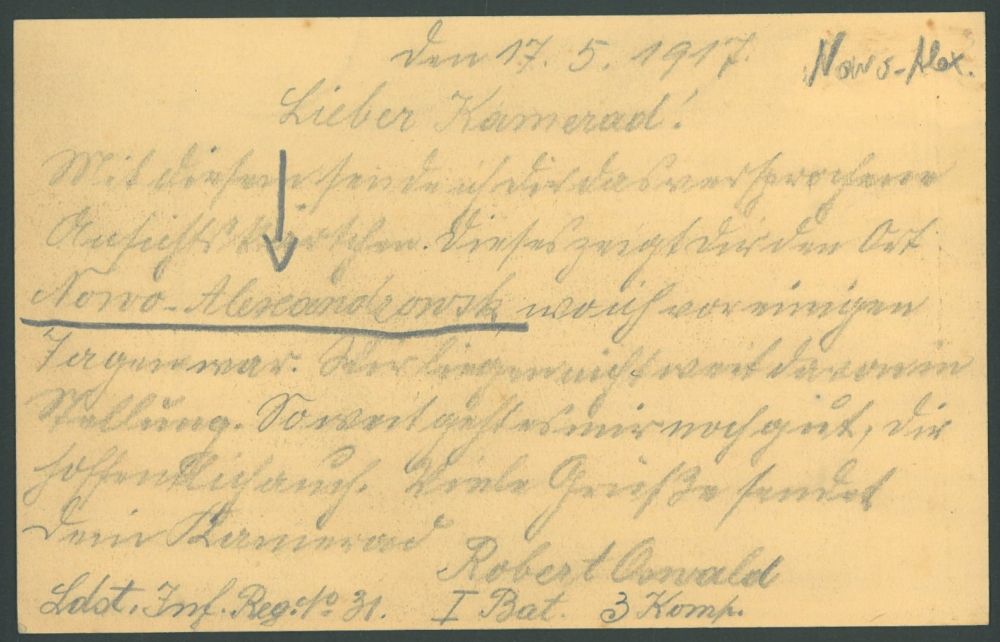 den 17. 5. 1917.
Nowo-Alex.
Lieber Kamerad!
Mit diesem sende ich dir das versprochene
Ansichtskärtchen. Dieses zeigt dir den Ort
Nowo-Alexandrowsk, wo ich vor einigen
Tagen war. Wir liegen nicht weit davon in
Stellung. Soweit geht es mir noch gut, dir
hoffentlich auch. Viele Grüße sendet
Dein Kamerad
Robert Oswald
Ldst. Inf. Reg. No 31. I Bat. 3 Komp.